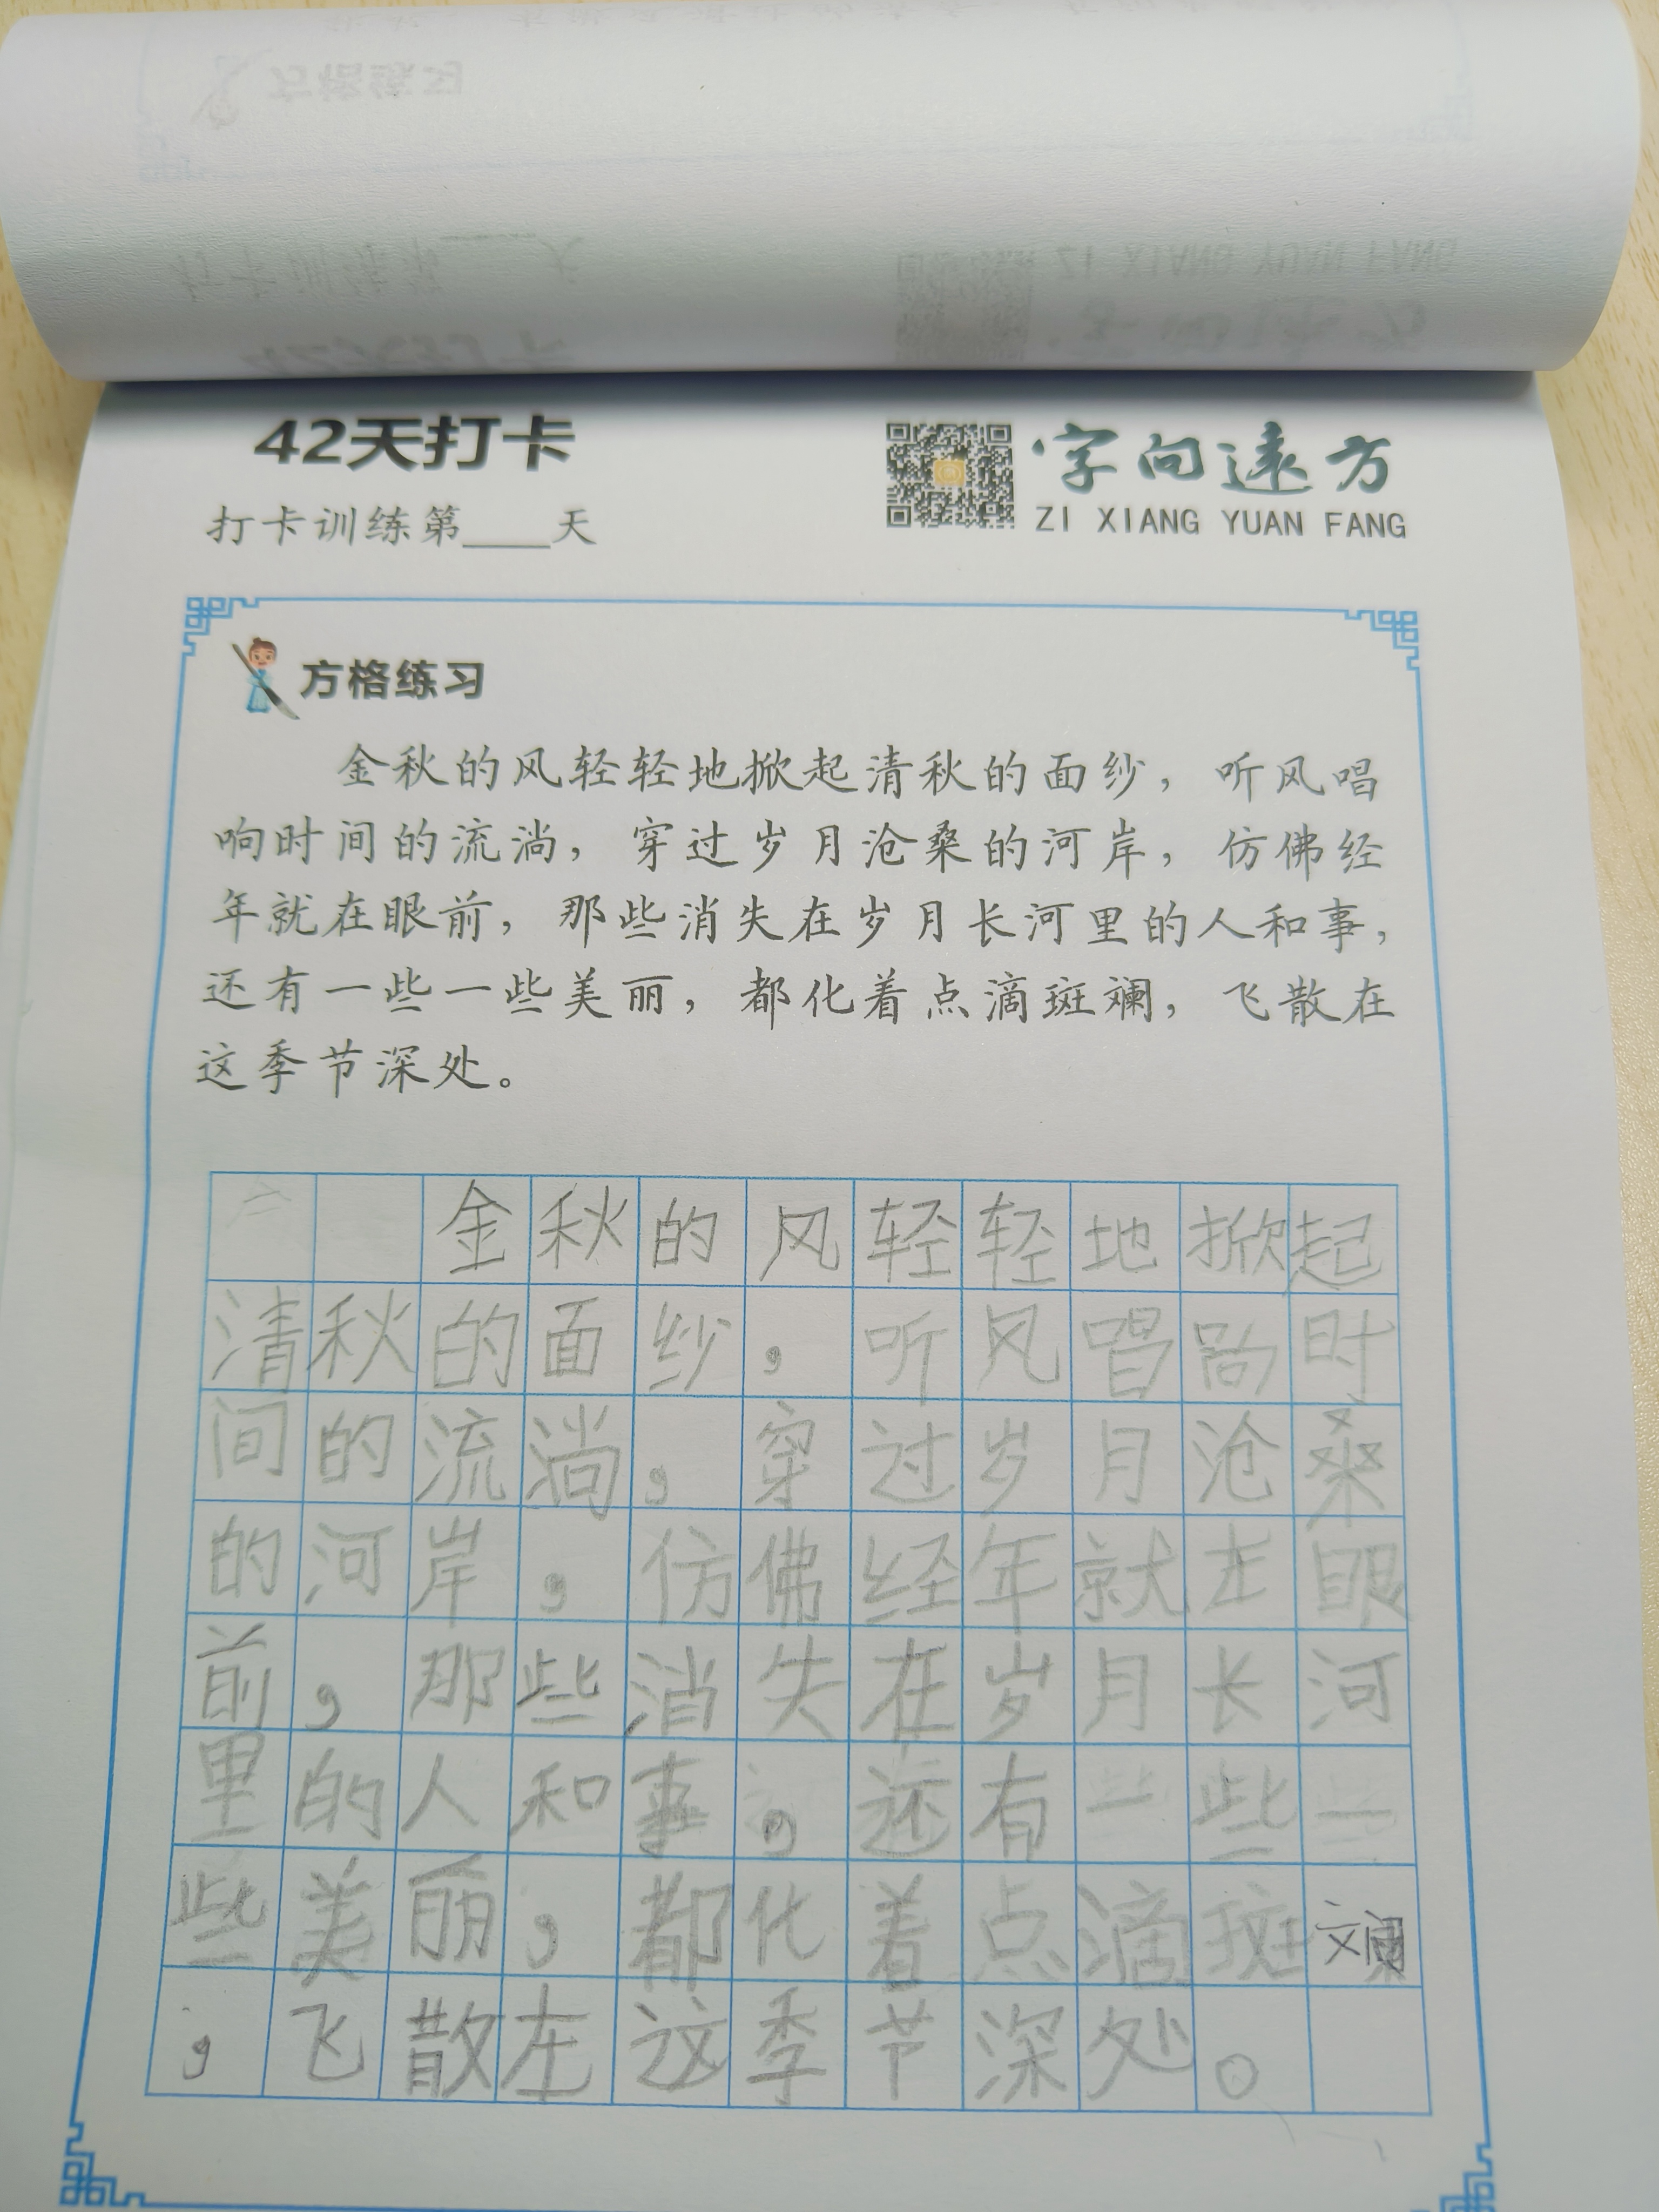 42天打卡
字向遠方
打卡训练第____天
ZI XIANG YUAN FANG
方格练习
金秋的风轻轻地掀起清秋的面纱，听风唱
响时间的流淌，穿过岁月沧桑的河岸，仿佛经
年就在眼前，那些消失在岁月长河里的人和事，
还有一些一些美丽，都化着点滴斑斓，飞散在
这季节深处。
金秋的风轻轻地掀起
清秋的面纱，听风唱响时
间的流淌，穿过岁月沧桑
的河岸，仿佛经年就在眼
前，那些消失在岁月长河
里的人和事，还有一些一
些美丽，都化着点滴斑斓
，飞散在这季节深处。